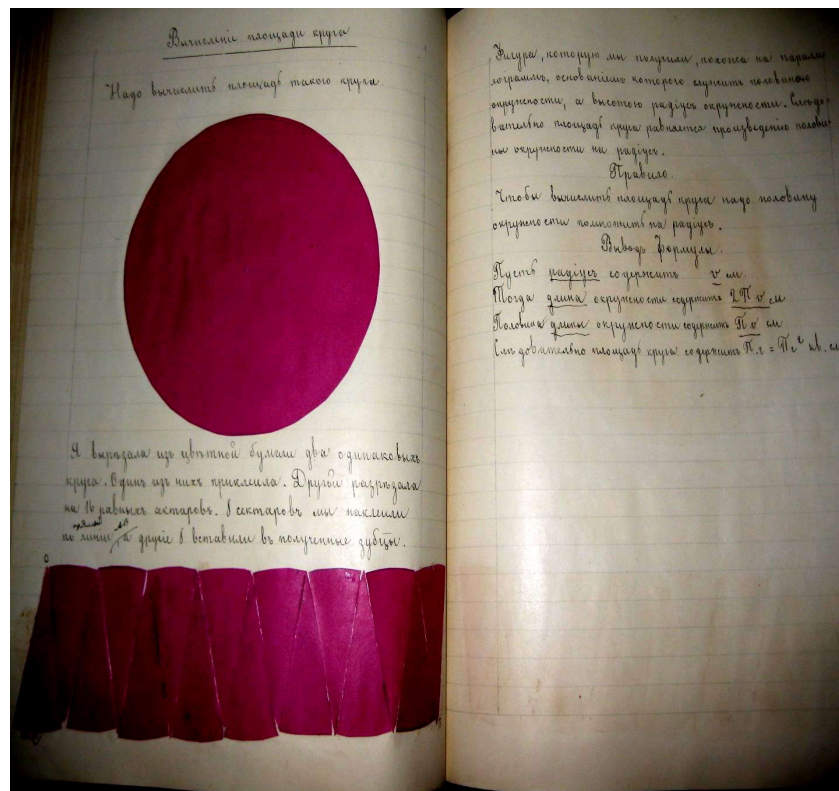 Вычисленіе площади круга
Надо вычислить площадь такого круга.
Я вырѣзала изъ цвѣтной бумаги два одинаковыхъ
круга. Одинъ изъ нихъ приклеила. Другой разрѣзала
на 16 равныхъ актаровъ. 8 секторовъ мы наклеили
прямой АВ
по линіи, а другіе 8 вставили въ полученные зубцы.
Фигура, которую мы получили, похожа на паралле
лограммъ, основаніемъ которого служитъ половина
окружности, а высотою радіусъ окружности. Слѣдо
вательно площадь круга равняется произведенію полови
ны окружности на радіусъ.
Правило.
Чтобы вычислить площадь круга надо половину
окружности помножить на радіусъ.
Выводъ формулы.
Пусть радіусъ содержитъ r см.
Тогда длина окружности содержитъ 2Пr см
Половина длины окружности содержитъ Пr см
Слѣдовательно площадь круга содержитъ = Пr² кв. см